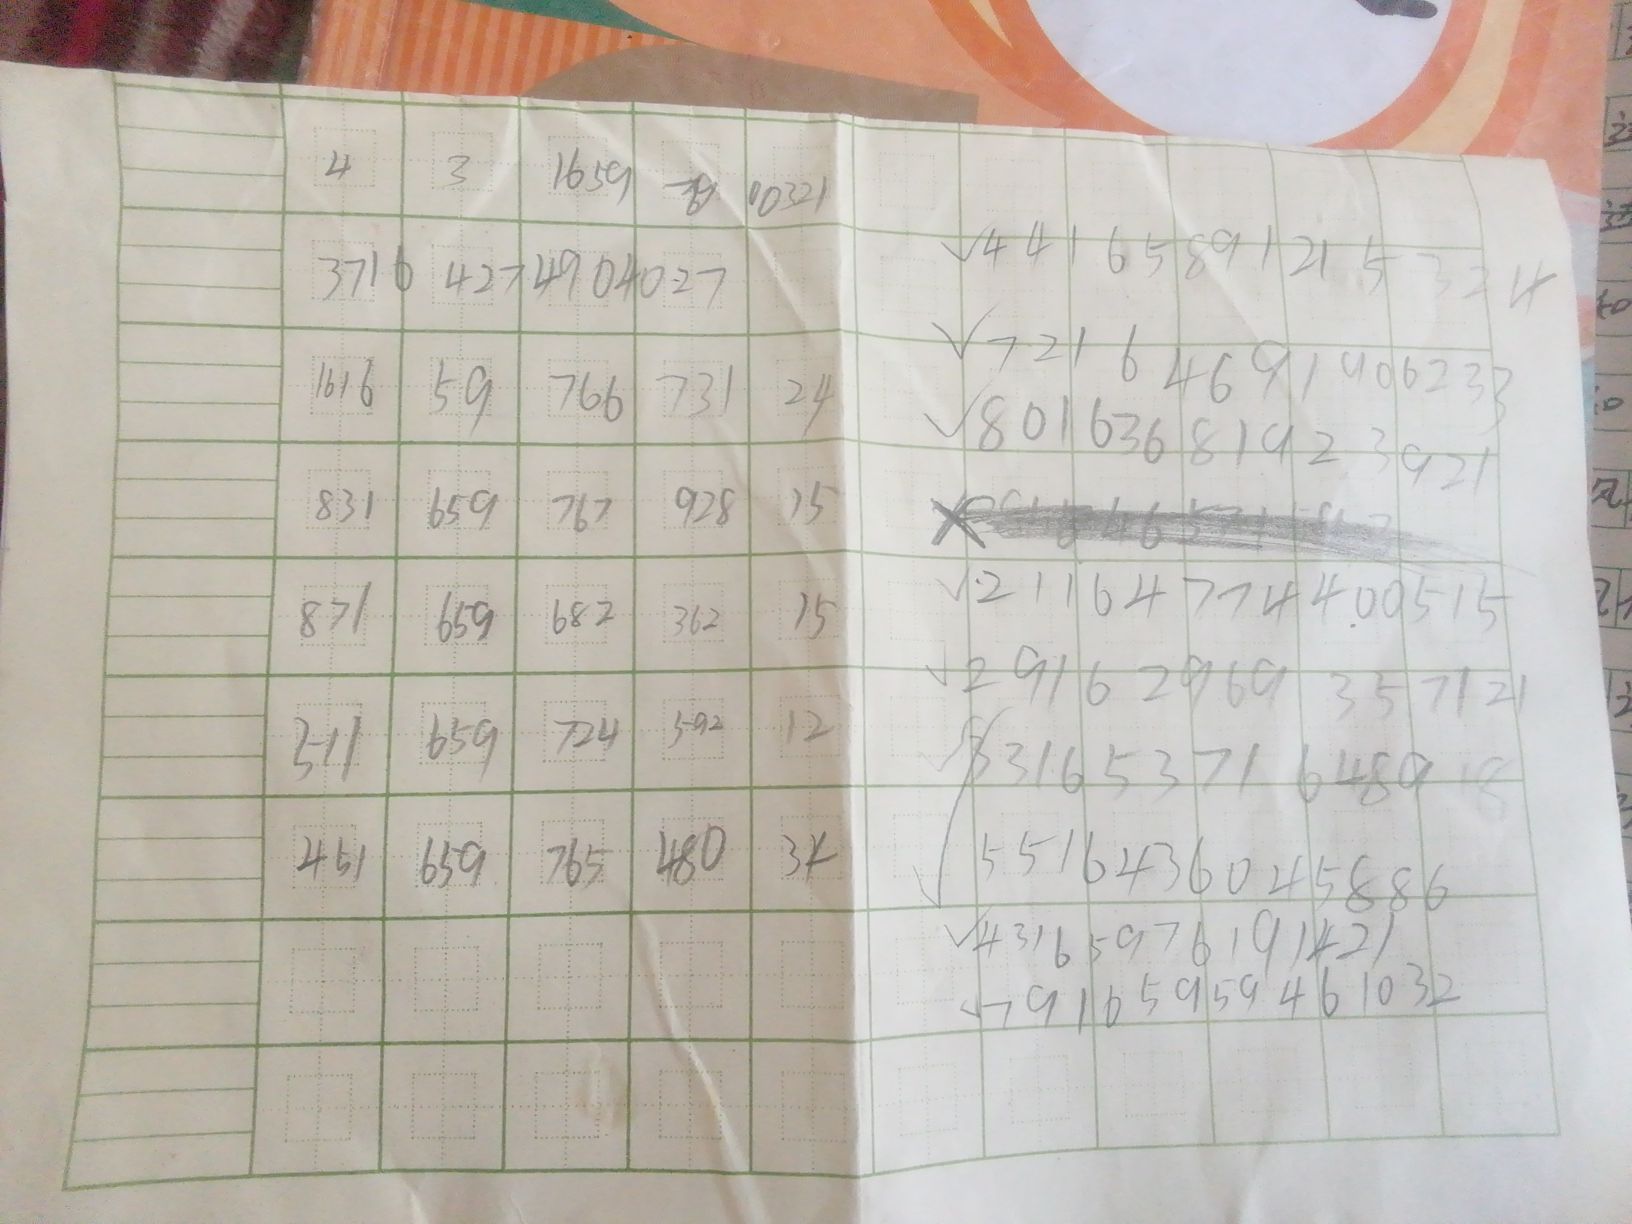 4 3 1659 00321
3716 427 4904027
1616 59 766 731 24
831 659 767 928 15
871 659 682 362 15
311 659 724 592 12
451 659 765 480 34
✓4416589121532 4
✓7216 4691906233
✓80163681923921
✓21164774400515
✓2916 2969 357121
✓331653716489 18
✓55164360245886
✓43165976191421
✓79165959461032